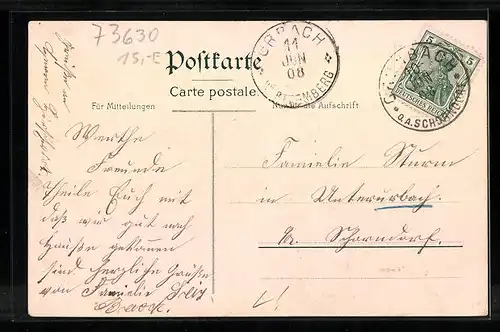 73630
15,-E
Postkarte
Carte postale
Für Mitteilungen
URBACH
11
JUN
08
WÜRTTEMBERG
URBACH
O.A. SCHORNDORF
5 5
DEUTSCHES REICH
Werthe
Freunde
Theile Euch mit
daß wir gut nach
Hauße gekommen
sind. herzliche Grüße
von Familie
Familie Sturm
in Unterurbach.
Schorndorf.